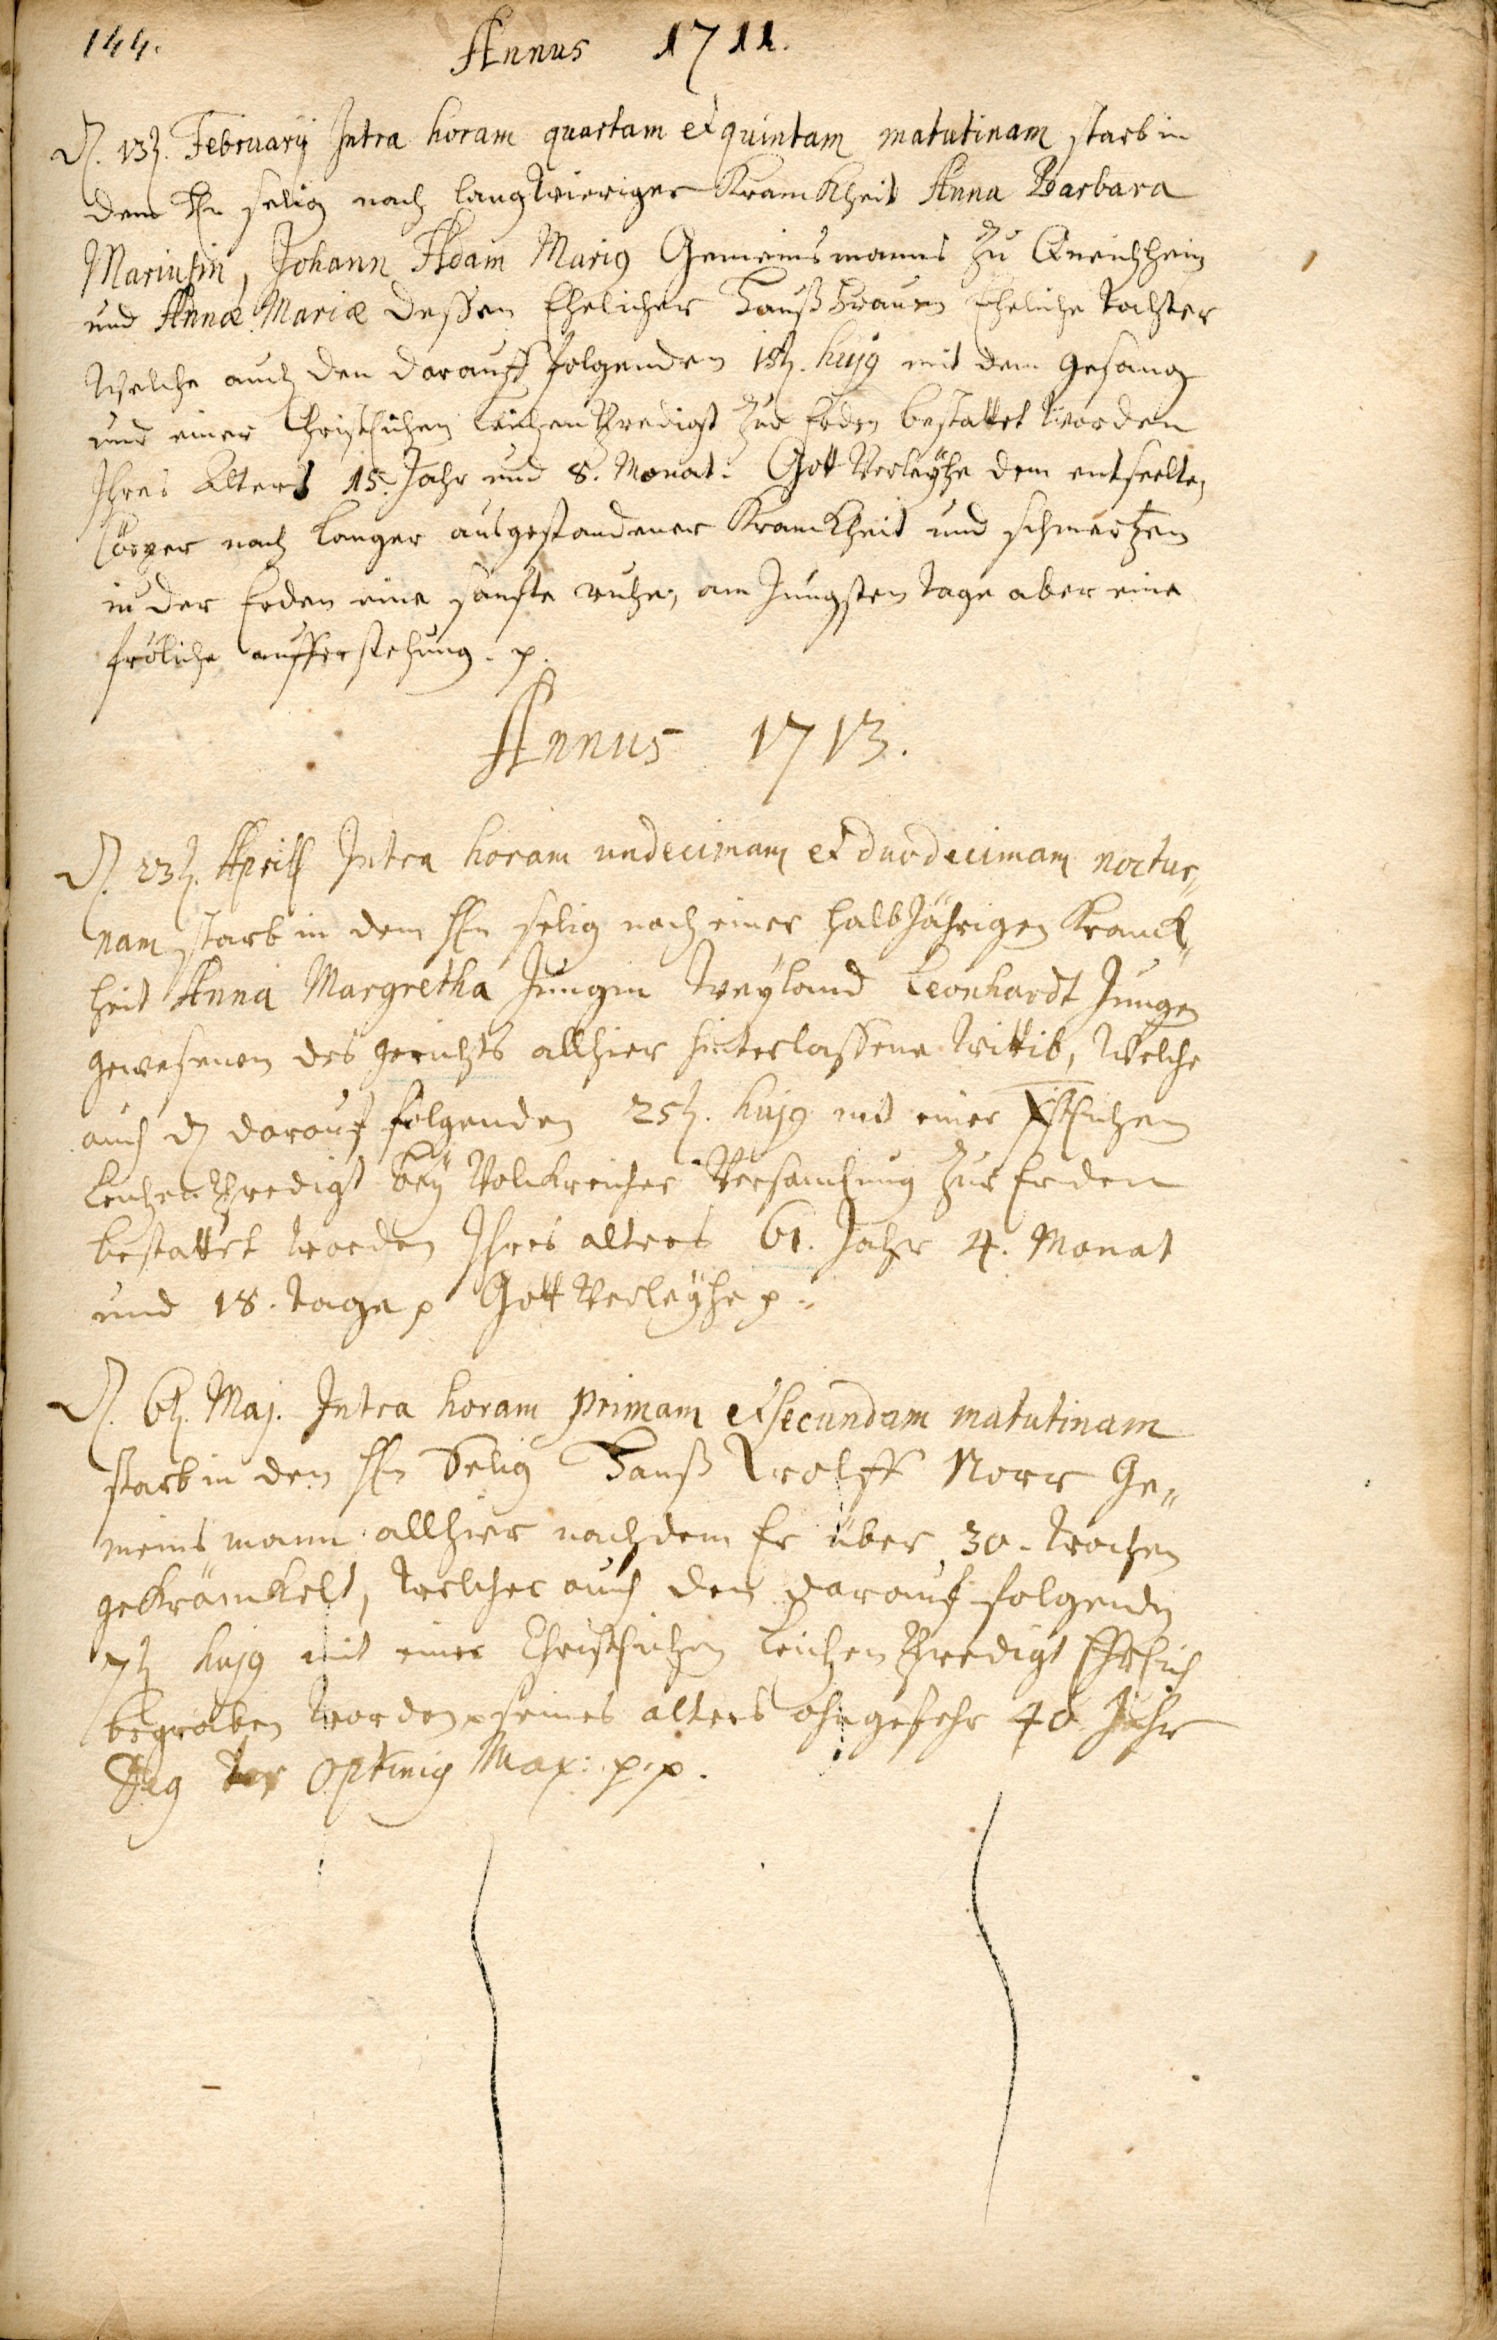 144.
Annus 1711.
D. 13t. Februarij Intra horam quartam et quintam matutinam starb in
dem Hn selig nach langwieriger Kranckheit Anna Barbara
Mariusin, Johann Adam Mariq Gemeinsmanns zu
und Annæ Mariæ dessen Ehelicher Haußfrauen Eheliche tochter
Welche auch den darauff folgenden hujq mit dem gesang
und einer Christlichen Leichen Predigt zur Erden bestattet worden
Ihres Alters 15. Jahr und 8. Monat. Gott Verleÿhe dem entseelten
Cörper nach langer ausgestandener Kranckheit und schmertzen
in der Erden eine sanfte ruhe, am Jüngsten tage aber eine
fröliche aufferstehung. p.
Annus 1713.
D. 23t. Aprill Intra horam undecimam et duodecimam noctur„
nam starb in dem Hn selig nach einer halbJährigen Kranck„
heit Anna Margretha Jungin weÿland Leonhardt Jungen
gewesenen des gerichts allhier hinterlassene wittib, Welche
auch dn darauf folgenden 25t. hujq mit einer Xstlichen
Leichen Predigt beÿ Volckreicher Versamlung zur Erden
bestattet worden Ihres alters 61. Jahr 4. Monat
und 18. tage p Gott Verleÿhe p.
D. 6t. Maj. Intra horam primam et secundam matutinam
starb in den Hn Selig Hanß Wolff Norr Ge„
meins mann allhier nachdem Er über 30. wochen
gekränckelt, welcher auch den darauf folgenden
7t hujq mit einer Christlichen Leichen Predigt Ehrlich
begraben worden seines alters ohngefehr 40 Jahr
Deq ter optimq Max: p.p.